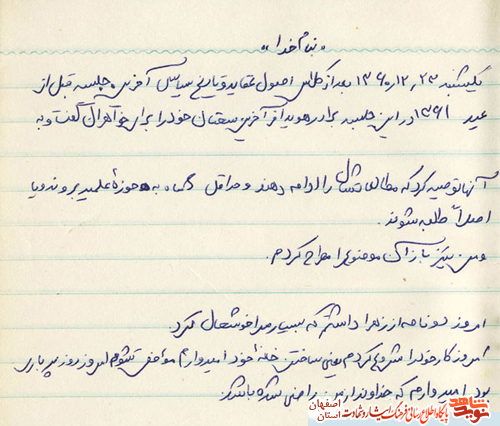 « بنام خدا »
یکشنبه ۱۳۶۰,۱۲,۲۳ بعد از کلاس اصول عقاید و تاریخ سیاسی آخرین جلسه قبل از
عید ۱۳۶۱ در این جلسه برادر آخرین سخنان خود را برای خواهران گفت و به
آنها توصیه کرد که مطالعاتشان را ادامه دهند و حداقل ماه به حوزهٔ علمیه بروند و یا
اصلاً طلبه شوند.
و من نیز باز آن موضوع را مطرح کردم.
امروز دو نامه از زهرا داشتم که بسیار مرا خوشحال کرد.
امروز کار خود را شروع کردم یعنی ساختن خانهٔ خود امیدوارم موفق شوم امروز روز پرباری
بود امیدوارم که خداوند از من راضی شده باشد.
نوید شاهد
پایگاه اطلاع رسانی فرهنگ ایثار و شهادت
استان اصفهان